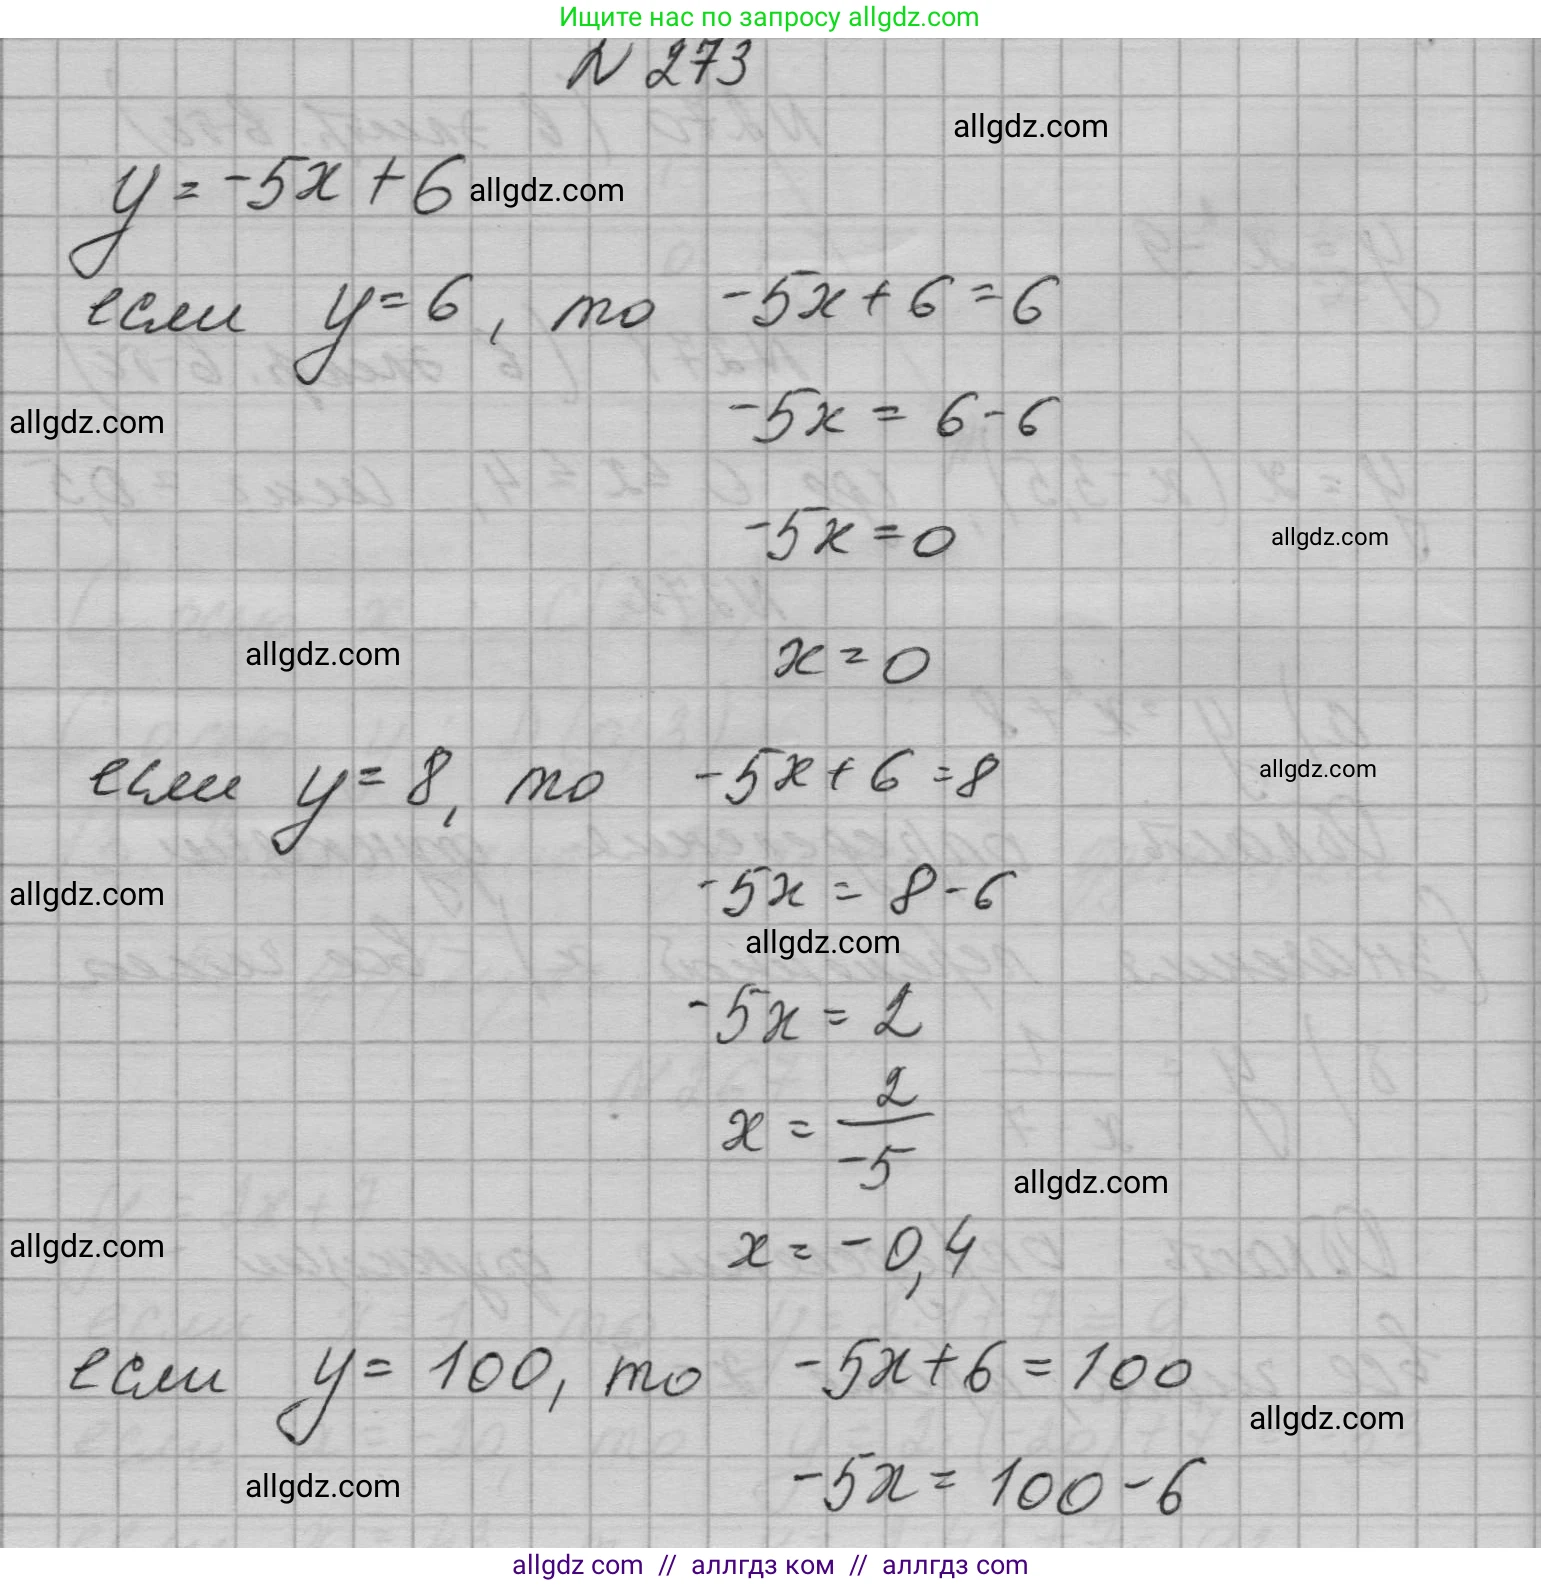 Ищите нас по запросу allgdz.com
N 273
allgdz.com
y = -5x + 6 allgdz.com
если y = 6, то -5x + 6 = 6
allgdz.com -5x = 6 - 6
-5x = 0 allgdz.com
allgdz.com x = 0
если y = 8, то -5x + 6 = 8 allgdz.com
allgdz.com -5x = 8 - 6
allgdz.com
-5x = 2
x = 2/-5
allgdz.com
allgdz.com x = -0,4
если y = 100, то -5x + 6 = 100
allgdz.com
allgdz.com -5x = 100 - 6
allgdz com // аллгдз ком // аллгдз com